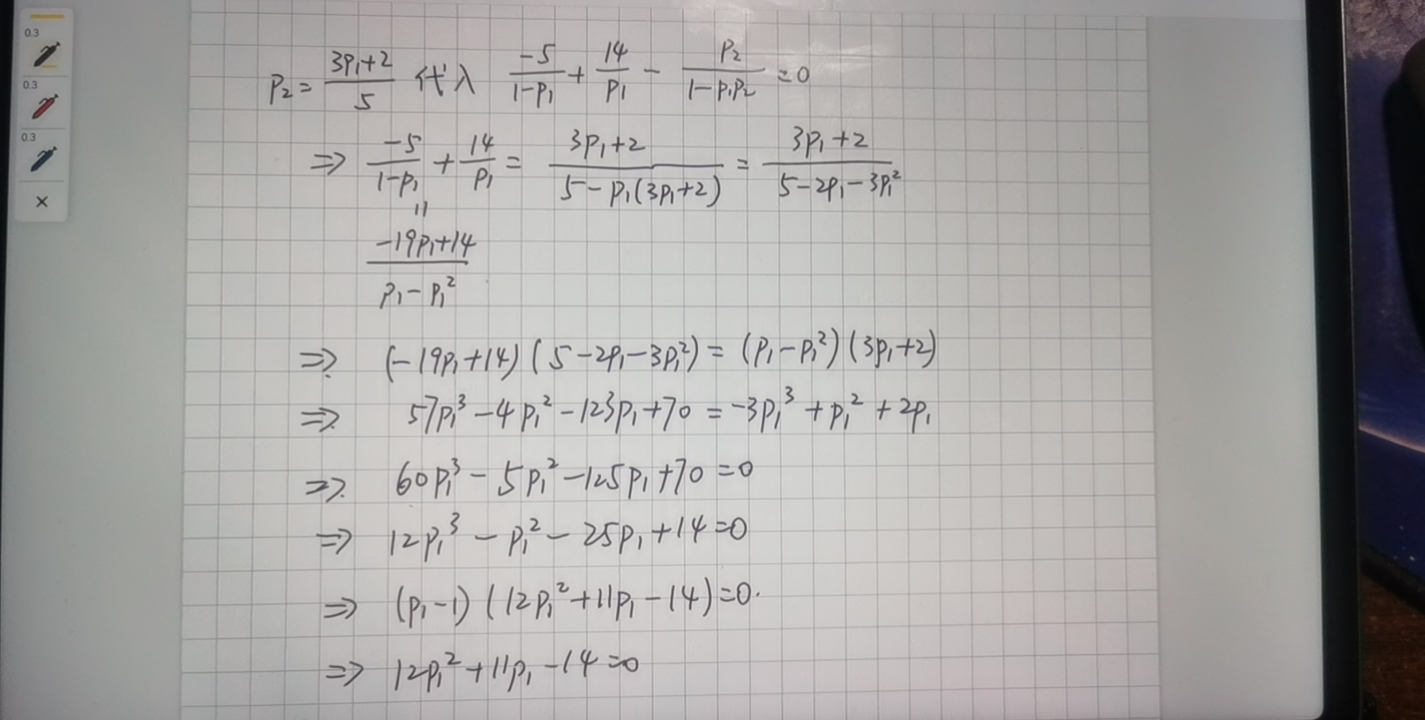 0.3
0.3
0.3
×
P₂ = (3p₁+2)/5 代入 -5/(1-p₁) + 14/p₁ - P₂/(1-p₁p₂) = 0
⇒ -5/(1-p₁) + 14/p₁ = (3p₁+2)/(5-p₁(3p₁+2)) = (3p₁+2)/(5-2p₁-3p₁²)
=
(-19p₁+14)/(p₁-p₁²)
⇒ (-19p₁+14)(5-2p₁-3p₁²) = (p₁-p₁²)(3p₁+2)
⇒ 57p₁³-4p₁²-123p₁+70 = -3p₁³+p₁²+2p₁
⇒ 60p₁³-5p₁²-125p₁+70=0
⇒ 12p₁³-p₁²-25p₁+14=0
⇒ (p₁-1)(12p₁²+11p₁-14)=0.
⇒ 12p₁²+11p₁-14=0